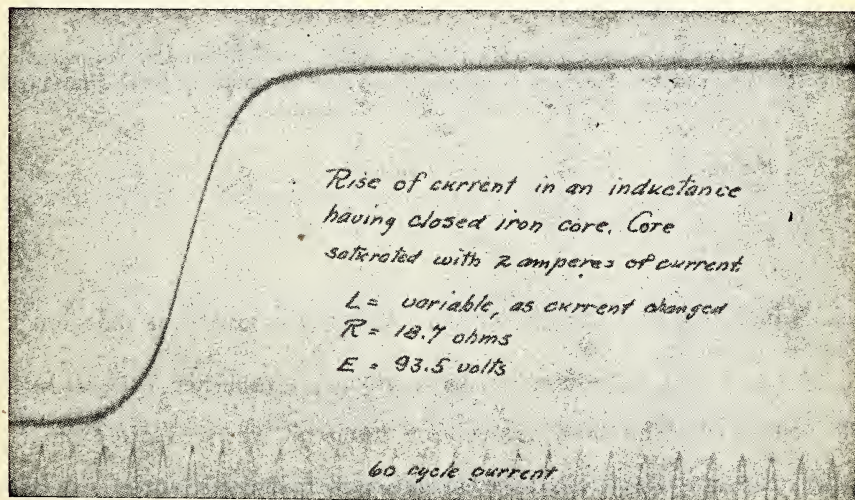 Rise of current in an inductance
having closed iron core. Core
saturated with 2 amperes of current
L = variable, as current changed
R = 18.7 ohms
E = 93.5 volts
60 cycle current